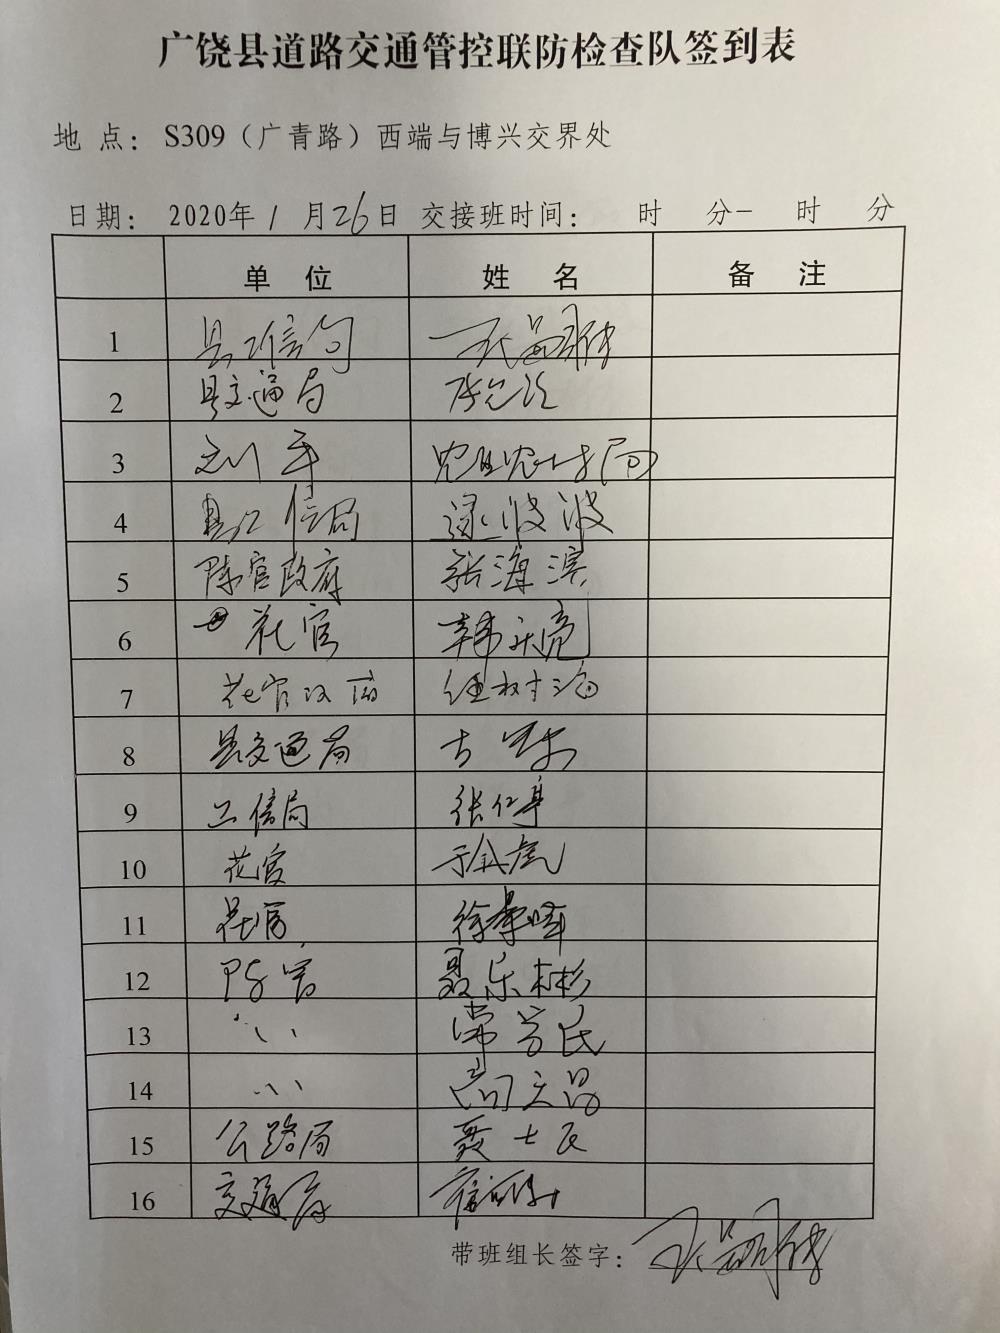 广饶县道路交通管控联防检查队签到表
地 点：S309（广青路）西端与博兴交界处
日期： 2020年 1 月 26 日 交接班时间： 时 分- 时 分
单 位 姓 名 备 注
1 县工信局
2 县交通局
3 刘军
4 县工信局 逯波波
5 陈官政府 张海滨
6 花官 韩天亮
7 花官政府 任树海
8 县交通局
9 工信局 张仁亭
10 花官 于金虎
11 花官 徐孝峰
12 陈官 聂乐彬
13 〃 常芳民
14 〃 高立昌
15 公路局 聂士民
16 交通局
带班组长签字：